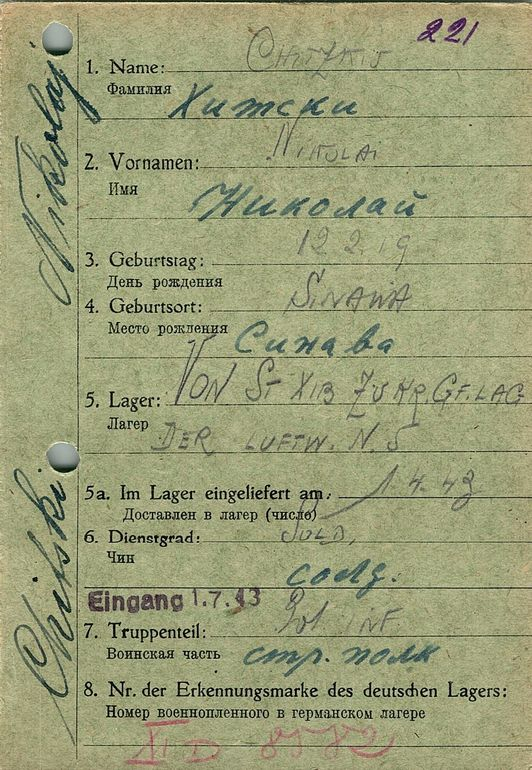 221
1. Name: CHITZKIJ
Фамилия Хитски
2. Vornamen: NIKOLAI
Имя Николай
3. Geburtstag: 12 2. 19
День рождения
4. Geburtsort: SINAWA
Место рождения Синава
5. Lager: VON ST XIB ZU KR.GF.LAG
Лагер DER LUFTW. N. 5
5a. Im Lager eingeliefert am: 1. 4. 43
Доставлен в лагер (число)
6. Dienstgrad: SOLD.
Чин солд.
Eingang 1.7.43
7. Truppenteil: INF.
Воинская часть стр. полк
8. Nr. der Erkennungsmarke des deutschen Lagers:
Номер военнопленного в германском лагере
XI D 8582
Chitski Nikolaj